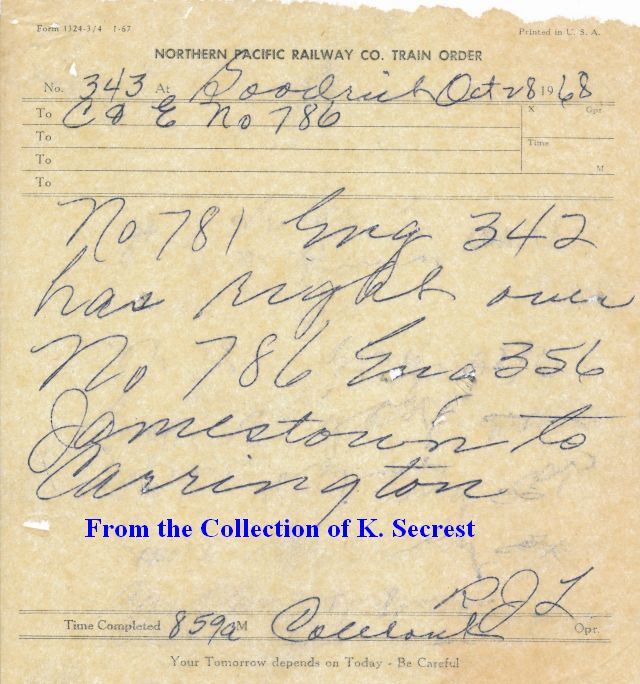 Form 1324-3/4 1-67 Printed in U. S. A.
NORTHERN PACIFIC RAILWAY CO. TRAIN ORDER
No. 343 At Goodrich Oct 28 1968
To C & E No 786 X Opr.
To Time
To M
To
No 781 Eng 342
has right over
No 786 Eng 356
Jamestown to
Carrington
From the Collection of K. Secrest
RJL
Time Completed 859a M Opr.
Your Tomorrow depends on Today - Be Careful